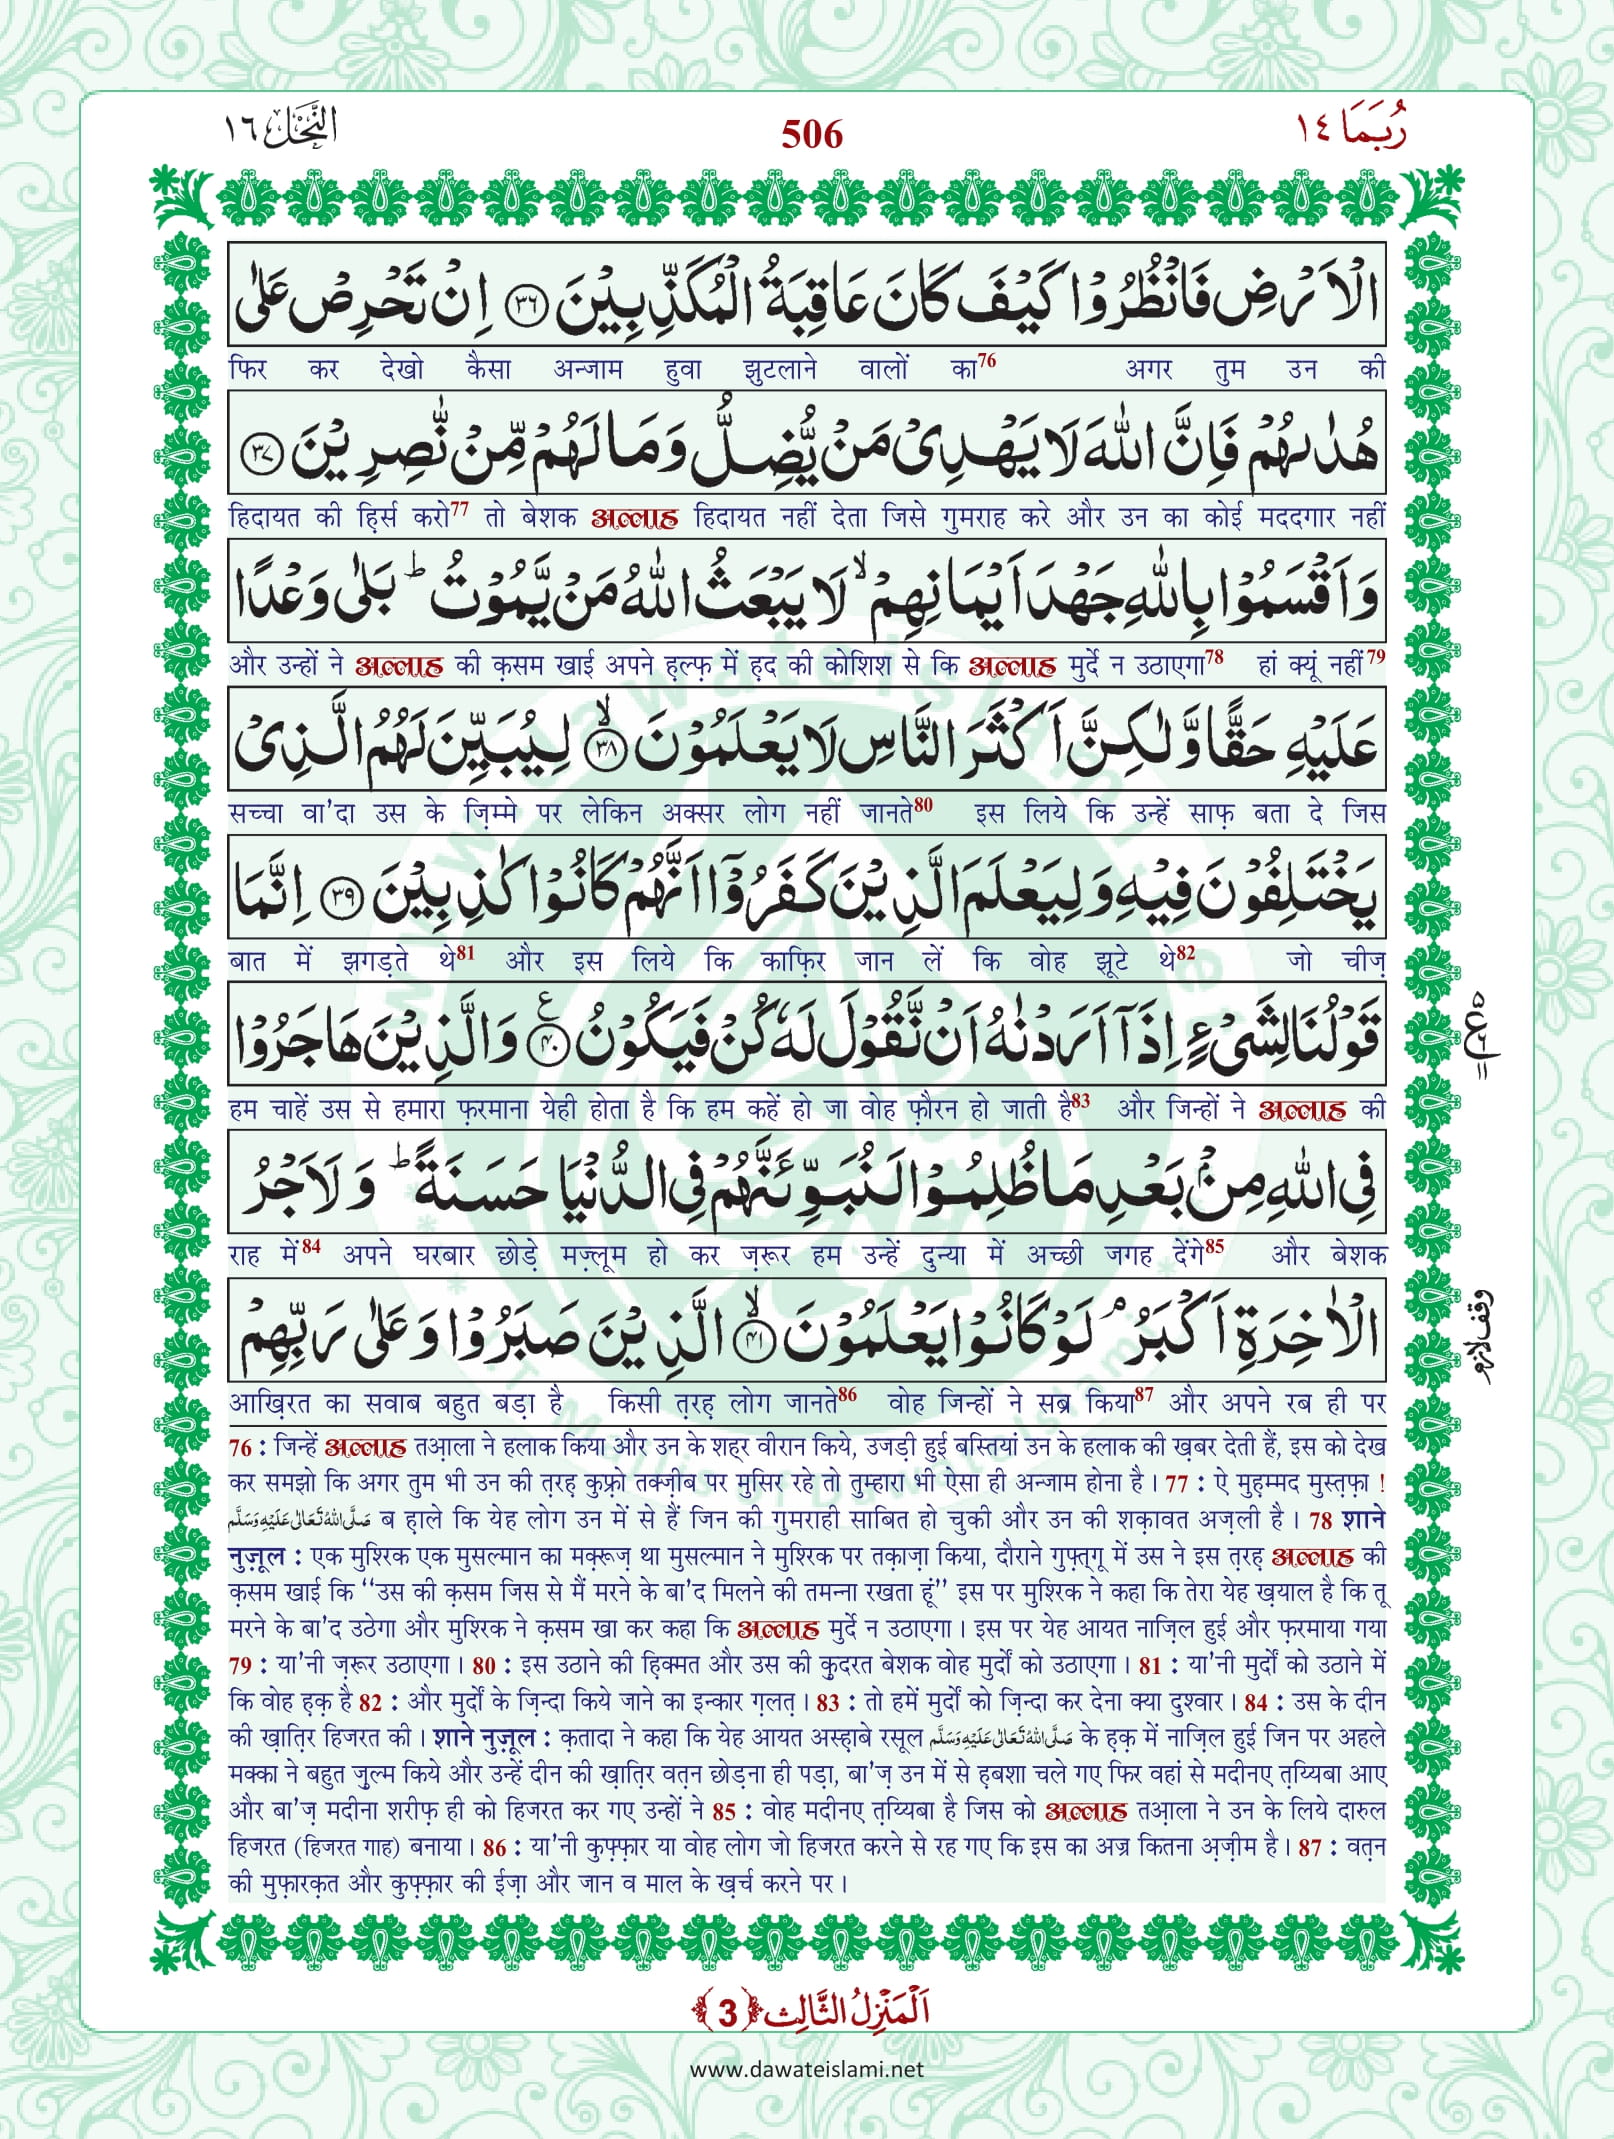 النَّحْل ١٦
506
رُبَمَا ١٤
الْاَرْضِ فَانْظُرُوْا كَیْفَ كَانَ عَاقِبَةُ الْمُكَذِّبِیْنَ ﴿۳۶﴾ اِنْ تَحْرِصْ عَلٰى
फिर कर देखो कैसा अन्जाम हुवा झुटलाने वालों का76 अगर तुम उन की
هُدٰىهُمْ فَاِنَّ اللّٰهَ لَا یَهْدِیْ مَنْ یُّضِلُّ وَ مَا لَهُمْ مِّنْ نّٰصِرِیْنَ ﴿۳۷﴾
हिदायत की हिर्स करो77 तो बेशक अल्लाह हिदायत नहीं देता जिसे गुमराह करे और उन का कोई मददगार नहीं
وَ اَقْسَمُوْا بِاللّٰهِ جَهْدَ اَیْمَانِهِمْ ۙ لَا یَبْعَثُ اللّٰهُ مَنْ یَّمُوْتُ ؕ بَلٰى وَعْدًا
और उन्हों ने अल्लाह की क़सम खाई अपने हल्फ़ में हद की कोशिश से कि अल्लाह मुर्दे न उठाएगा78 हां क्यूं नहीं79
عَلَیْهِ حَقًّا وَّ لٰكِنَّ اَكْثَرَ النَّاسِ لَا یَعْلَمُوْنَ ﴿۳۸﴾ۙ لِیُبَیِّنَ لَهُمُ الَّذِیْ
सच्चा वा'दा उस के ज़िम्मे पर लेकिन अक्सर लोग नहीं जानते80 इस लिये कि उन्हें साफ़ बता दे जिस
یَخْتَلِفُوْنَ فِیْهِ وَ لِیَعْلَمَ الَّذِیْنَ كَفَرُوْۤا اَنَّهُمْ كَانُوْا كٰذِبِیْنَ ﴿۳۹﴾ اِنَّمَا
बात में झगड़ते थे81 और इस लिये कि काफ़िर जान लें कि वोह झूटे थे82 जो चीज़
قَوْلُنَا لِشَیْءٍ اِذَاۤ اَرَدْنٰهُ اَنْ نَّقُوْلَ لَهٗ كُنْ فَیَكُوْنُ ﴿۴۰﴾ۧ وَ الَّذِیْنَ هَاجَرُوْا
हम चाहें उस से हमारा फ़रमाना येही होता है कि हम कहें हो जा वोह फ़ौरन हो जाती है83 और जिन्हों ने अल्लाह की
فِی اللّٰهِ مِنْۢ بَعْدِ مَا ظُلِمُوْا لَنُبَوِّئَنَّهُمْ فِی الدُّنْیَا حَسَنَةً ؕ وَ لَاَجْرُ
राह में84 अपने घरबार छोड़े मज़्लूम हो कर ज़रूर हम उन्हें दुन्या में अच्छी जगह देंगे85 और बेशक
الْاٰخِرَةِ اَكْبَرُ ۘ لَوْ كَانُوْا یَعْلَمُوْنَ ﴿۴۱﴾ۙ الَّذِیْنَ صَبَرُوْا وَ عَلٰى رَبِّهِمْ
وقف لازم
आख़िरत का सवाब बहुत बड़ा है किसी त़रह लोग जानते86 वोह जिन्हों ने सब्र किया87 और अपने रब ही पर
76 : जिन्हें अल्लाह तआ़ला ने हलाक किया और उन के शह्‌र वीरान किये, उजड़ी हुई बस्तियां उन के हलाक की ख़बर देती हैं, इस को देख
कर समझो कि अगर तुम भी उन की त़रह कुफ़्रो तक्ज़ीब पर मुसिर रहे तो तुम्हारा भी ऐसा ही अन्जाम होना है । 77 : ऐ मुह़म्मद मुस्त़फ़ा !
صَلَّى اللّٰهُ تَعَالٰى عَلَيْهِ وَسَلَّم ब ह़ाले कि येह लोग उन में से हैं जिन की गुमराही साबित हो चुकी और उन की शक़ावत अज़ली है । 78 शाने
नुज़ूल : एक मुश्रिक एक मुसल्मान का मक़्रूज़ था मुसल्मान ने मुश्रिक पर तक़ाज़ा किया, दौराने गुफ़्त्गू में उस ने इस त़रह अल्लाह की
क़सम खाई कि ‘‘उस की क़सम जिस से मैं मरने के बा'द मिलने की तमन्ना रखता हूं’’ इस पर मुश्रिक ने कहा कि तेरा येह ख़याल है कि तू
मरने के बा'द उठेगा और मुश्रिक ने क़सम खा कर कहा कि अल्लाह मुर्दे न उठाएगा । इस पर येह आयत नाज़िल हुई और फ़रमाया गया
79 : या'नी ज़रूर उठाएगा । 80 : इस उठाने की ह़िक्मत और उस की क़ुदरत बेशक वोह मुर्दों को उठाएगा । 81 : या'नी मुर्दों को उठाने में
कि वोह ह़क़ है 82 : और मुर्दों के ज़िन्दा किये जाने का इन्कार ग़लत़ । 83 : तो हमें मुर्दों को ज़िन्दा कर देना क्या दुश्वार । 84 : उस के दीन
की ख़ात़िर हिजरत की । शाने नुज़ूल : क़तादा ने कहा कि येह आयत अस्ह़ाबे रसूल صَلَّى اللّٰهُ تَعَالٰى عَلَيْهِ وَسَلَّم के ह़क़ में नाज़िल हुई जिन पर अहले
मक्का ने बहुत ज़ुल्म किये और उन्हें दीन की ख़ात़िर वत़न छोड़ना ही पड़ा, बा'ज़ उन में से ह़बशा चले गए फिर वहां से मदीनए त़य्यिबा आए
और बा'ज़ मदीना शरीफ़ ही को हिजरत कर गए उन्हों ने 85 : वोह मदीनए त़य्यिबा है जिस को अल्लाह तआ़ला ने उन के लिये दारुल
हिजरत (हिजरत गाह) बनाया । 86 : या'नी कुफ़्फ़ार या वोह लोग जो हिजरत करने से रह गए कि इस का अज्र कितना अ़ज़ीम है । 87 : वत़न
की मुफ़ारक़त और कुफ़्फ़ार की ईज़ा और जान व माल के ख़र्च करने पर ।
اَلْمَنْزِلُ الثَّالِث ﴿3﴾
www.dawateislami.net